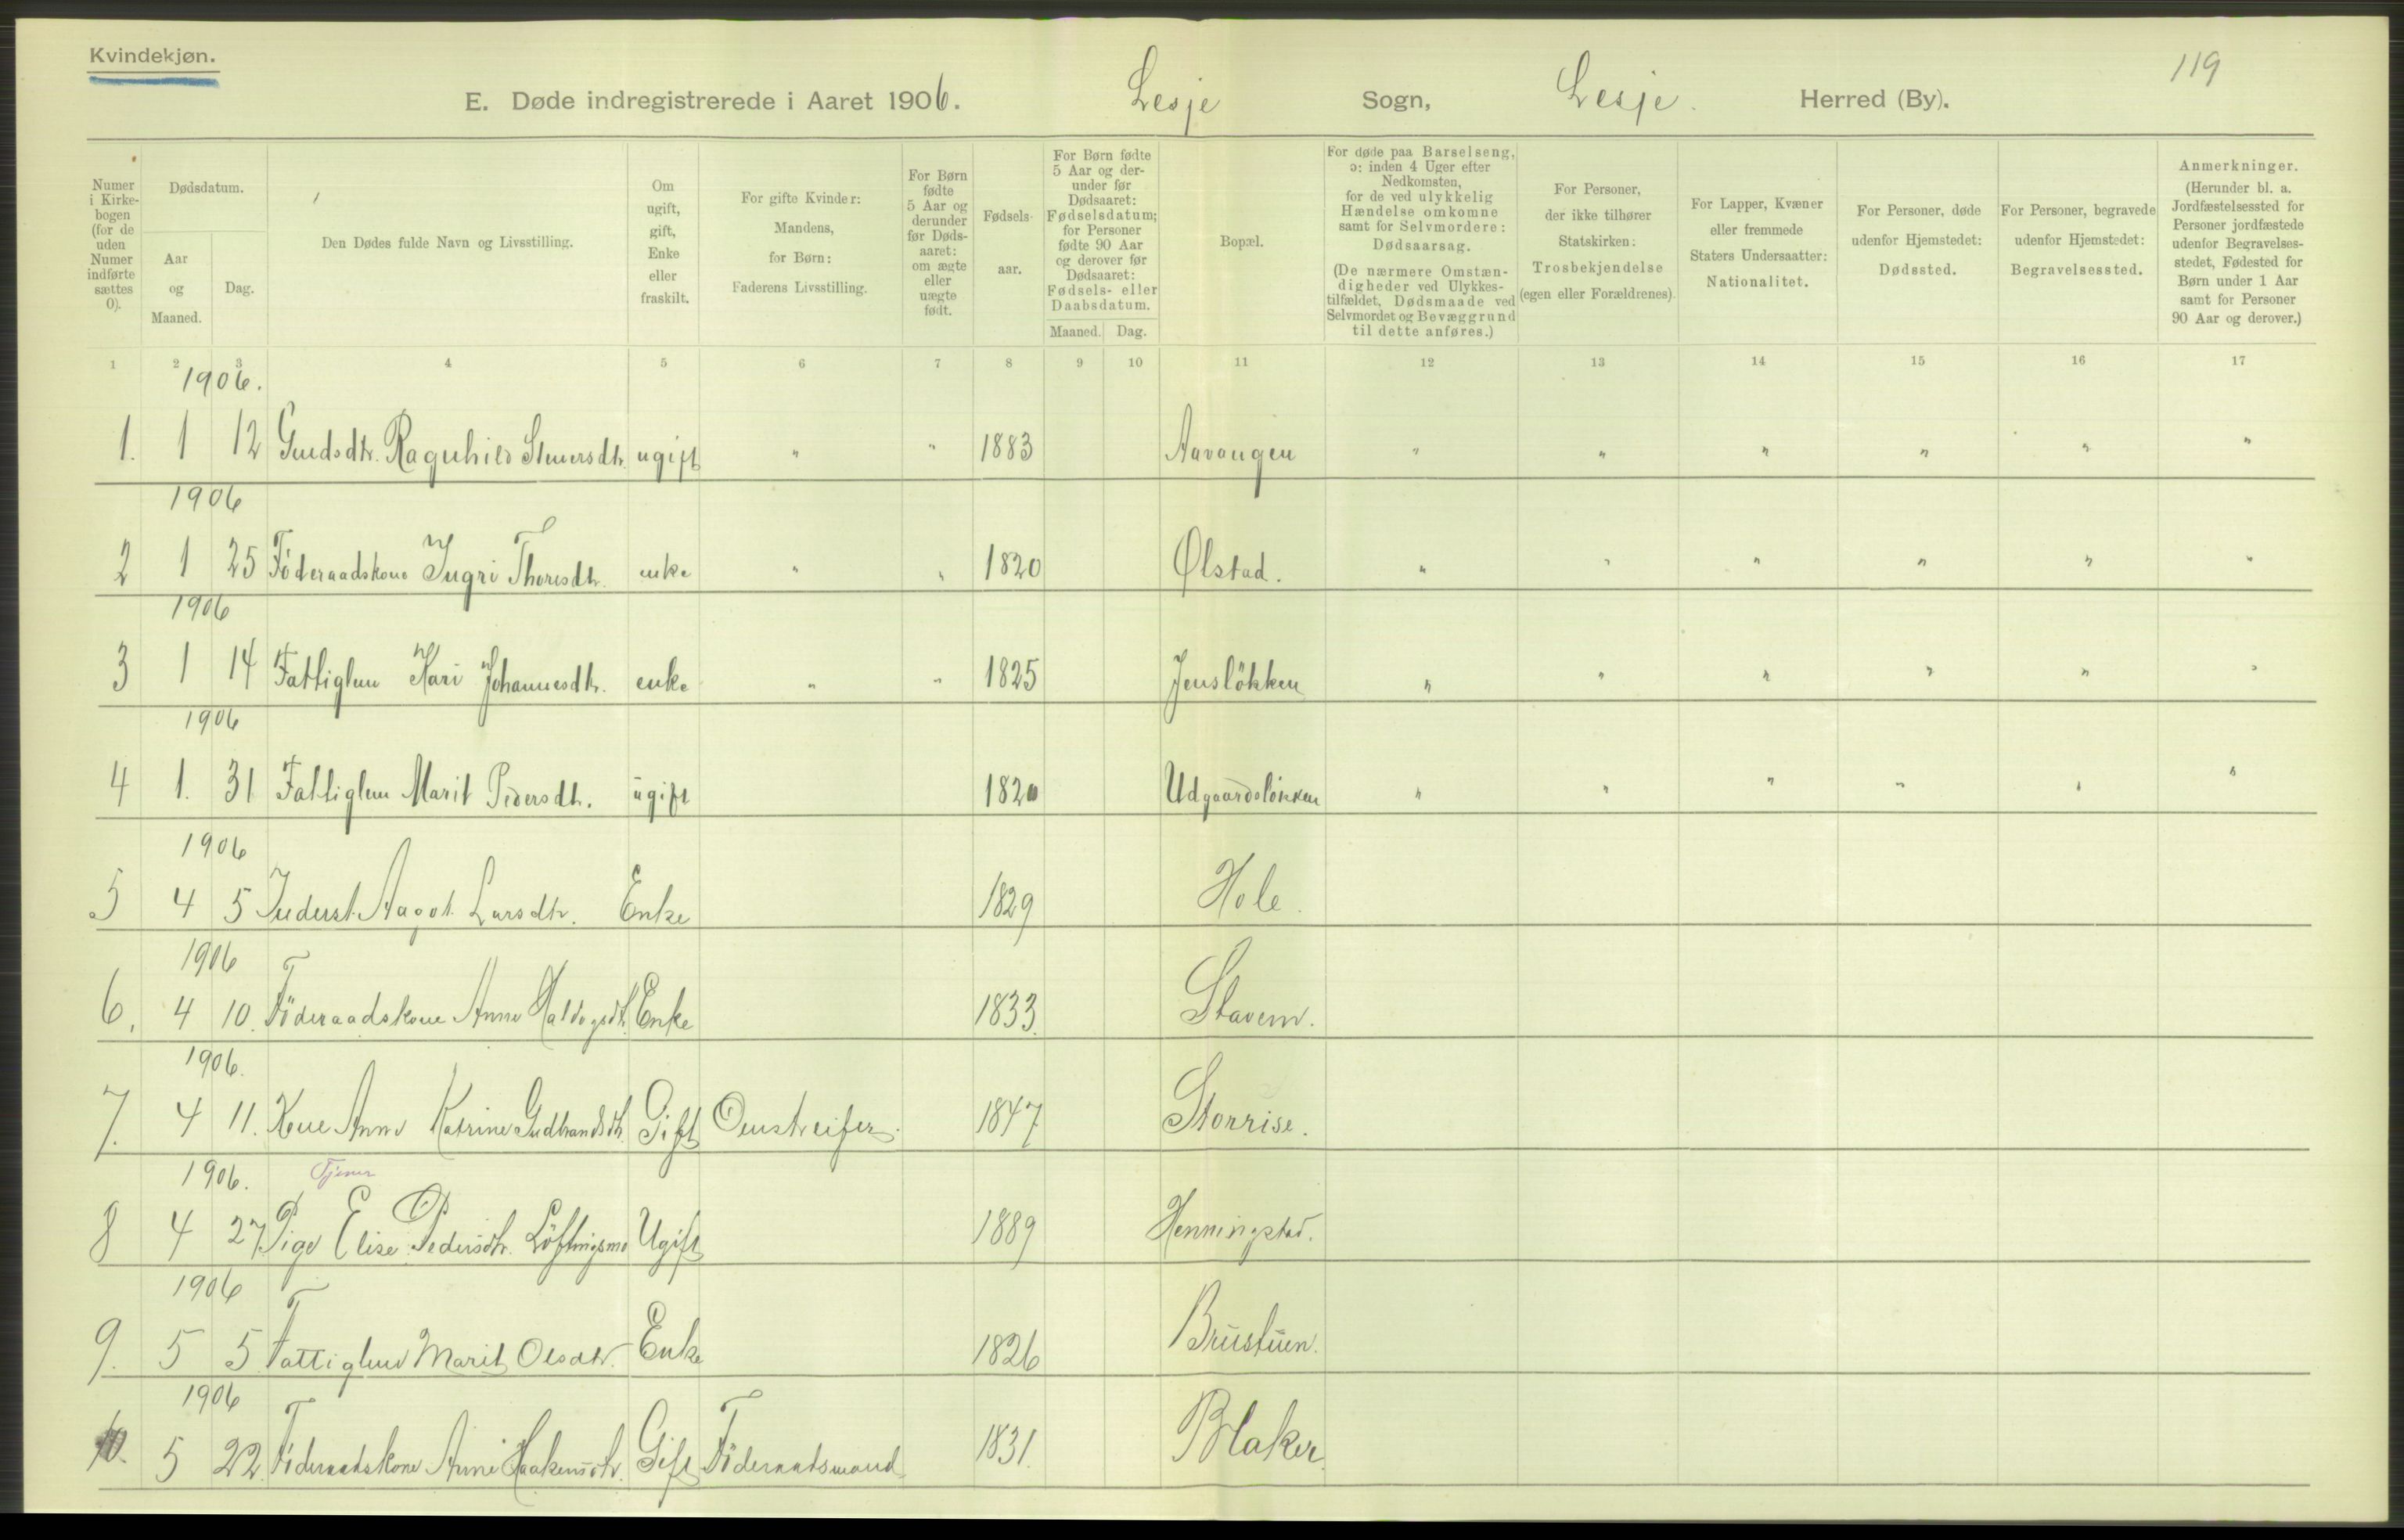 Kvindekjøn.
119
E. Døde indregistrerede i Aaret 1906. Lesje Sogn, Lesje. Herred (By).
Numer i Kirkebogen (for de uden Numer indførte sættes 0).
Dødsdatum.
Aar og Maaned.
Dag.
Den Dødes fulde Navn og Livsstilling.
Om ugift, gift, Enke eller fraskilt.
For gifte Kvinder: Mandens, for Børn: Faderens Livsstilling.
For Børn fødte 5 Aar og derunder før Dødsaaret: om ægte eller uægte født.
Fødselsaar.
For Børn fødte 5 Aar og derunder før Dødsaaret: Fødselsdatum; for Personer fødte 90 Aar og derover før Dødsaaret: Fødsels- eller Daabsdatum.
Maaned. Dag.
Bopæl.
For døde paa Barselseng, ɔ: inden 4 Uger efter Nedkomsten, for de ved ulykkelig Hændelse omkomne samt for Selvmordere: Dødsaarsag. (De nærmere Omstændigheder ved Ulykkestilfældet, Dødsmaade ved Selvmordet og Bevæggrund til dette anføres.)
For Personer, der ikke tilhører Statskirken: Trosbekjendelse (egen eller Forældrenes).
For Lapper, Kvæner eller fremmede Staters Undersaatter: Nationalitet.
For Personer, døde udenfor Hjemstedet: Dødssted.
For Personer, begravede udenfor Hjemstedet: Begravelsessted.
Anmerkninger. (Herunder bl. a. Jordfæstelsessted for Personer jordfæstede udenfor Begravelsesstedet, Fødested for Børn under 1 Aar samt for Personer 90 Aar og derover.)
1 2 3 4 5 6 7 8 9 10 11 12 13 14 15 16 17
1906.
1. 1 12 Gaardsdtr. Ragnhild Steinersdtr. ugift " " 1883 Aavangen " " " " " "
1906
2 1 25 Föderaadskone Ingri Thoresdtr. enke " " 1820 Ølstad. " " " " " "
1906
3 1 14 Fattiglem Kari Johannesdtr. enke " " 1825 Jensløkken " " " " " "
1906
4 1. 31 Fattiglem Marit Pedersdtr. ugift 1820 Udgaardsløkken " " " " " "
1906
5 4 5 Inderst. Aagot Larsdtr. Enke 1829 Hole.
1906
6. 4 10. Föderaadskone Anne Enke 1833. Stavem.
1906.
7. 4 11. Kone Anne Katrine Gudbrandsdtr. Gift Omstreifer. 1847 Storrise.
1906. Tjener
8 4 27 Pige Elise Pedersdtr. Löftingsmo Ugift 1889 Henningstad.
1906
9. 5 5 Fattiglem Marit Olsdtr. Enke 1826 Brustuen.
1906
10. 5 22. Föderaadskone Anne Haakensdtr. Gift Föderaadsmand 1831. Blaker.